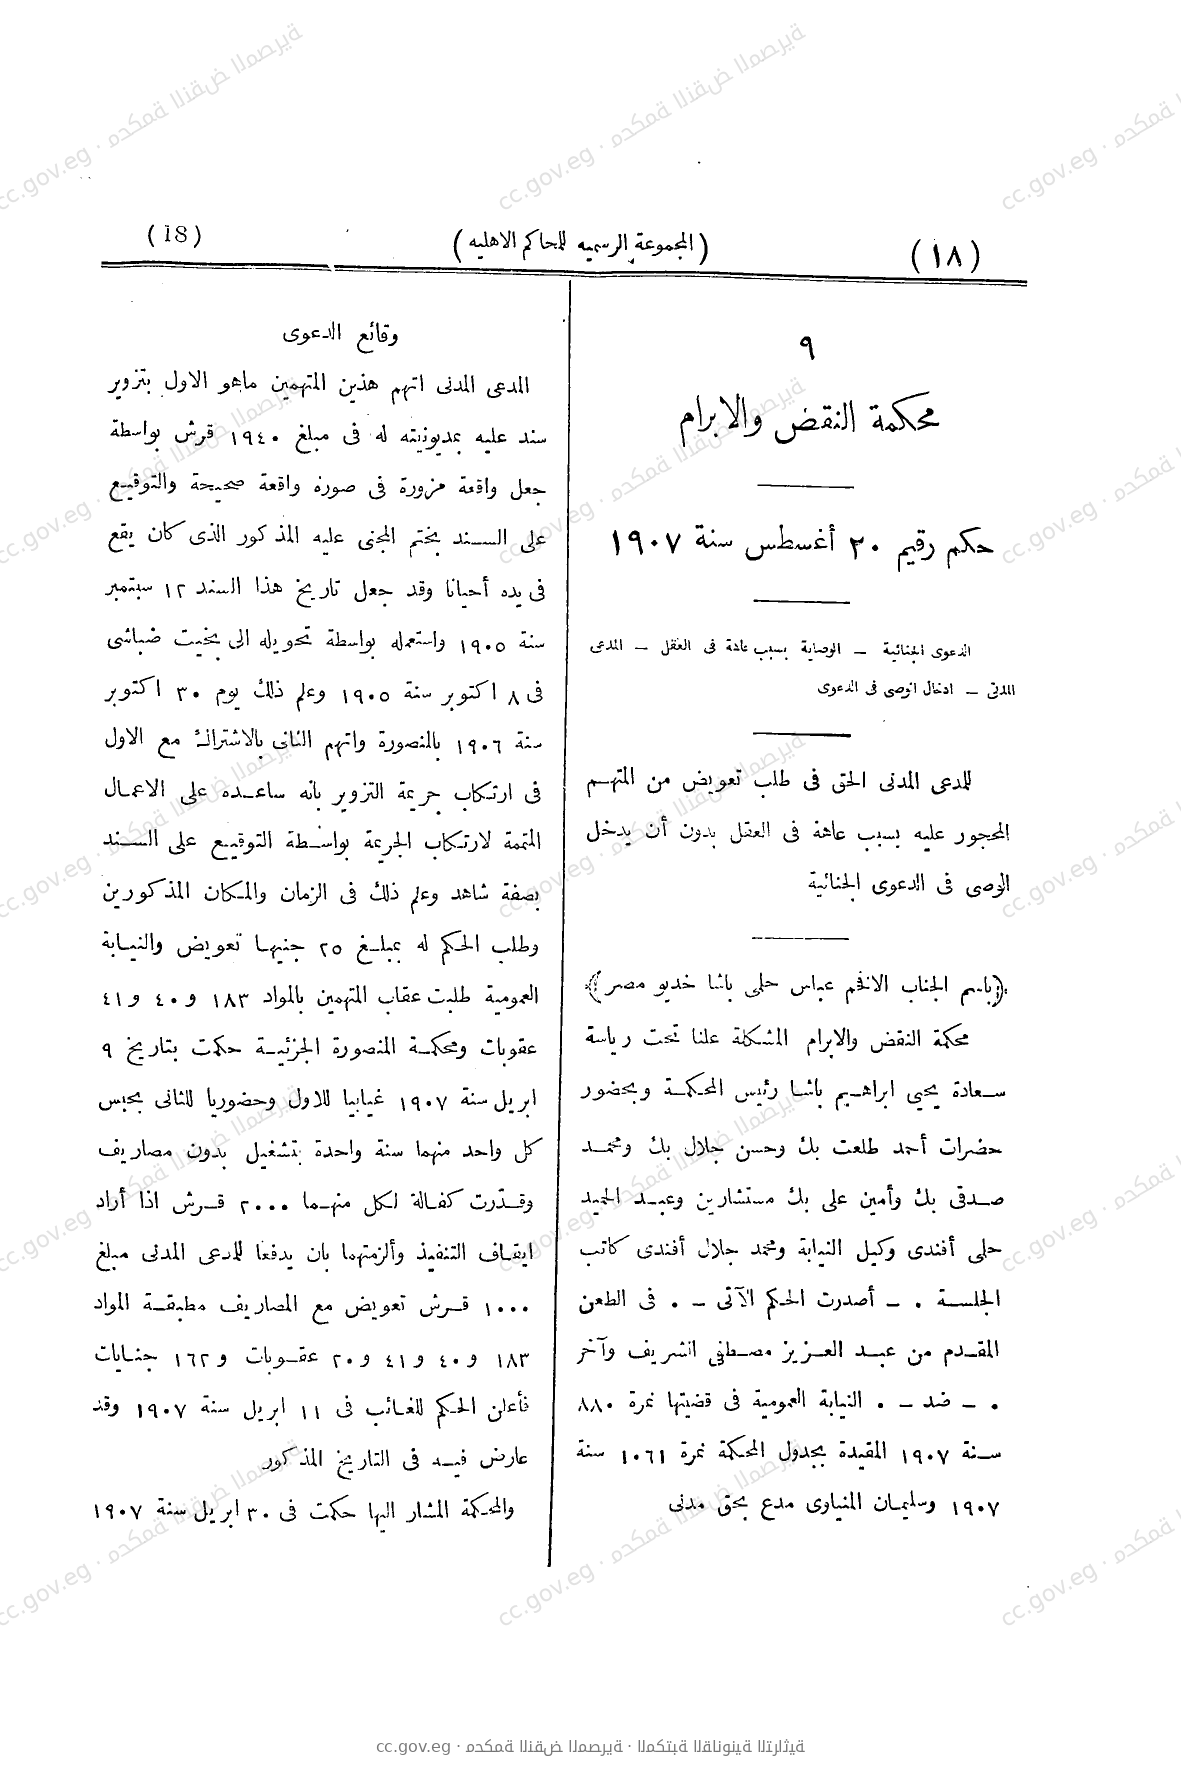 (١٨)
(المجموعة الرسميه للمحاكم الاهليه)
(18)
٩
محكمة النقض والابرام
حكم رقيم ٢٠ أغسطس سنة ١٩٠٧
الدعوى الجنائية — الوصاية بسبب عاهة فى العقل — المدعى
المدنى — ادخال الوصى فى الدعوى
للمدعى المدنى الحق فى طلب تعويض من المتهم
المحجور عليه بسبب عاهة فى العقل بدون أن يدخل
الوصى فى الدعوى الجنائية
﴿باسم الجناب الافخم عباس حلمى باشا خديو مصر﴾
محكمة النقض والابرام المشكلة علنا تحت رياسة
سعادة يحيى ابراهيم باشا رئيس المحكمة وبحضور
حضرات أحمد طلعت بك وحسن جلال بك ومحمد
صدقى بك وأمين على بك مستشارين وعبد الحميد
حلمى أفندى وكيل النيابة ومحمد جلال أفندى كاتب
الجلسة . — أصدرت الحكم الآتى — . فى الطعن
المقدم من عبد العزيز مصطفى الشريف وآخر
. — ضد — . النيابة العمومية فى قضيتها نمرة ٨٨٠
سنة ١٩٠٧ المقيدة بجدول المحكمة نمرة ١٠٦١ سنة
١٩٠٧ وسليمان المنياوى مدع بحق مدنى
وقائع الدعوى
المدعى المدنى اتهم هذين المتهمين ماهو الاول بتزوير
سند عليه بمديونيته له فى مبلغ ١٩٤٠ قرش بواسطة
جعل واقعة مزورة فى صورة واقعة صحيحة والتوقيع
على السند بختم المجنى عليه المذكور الذى كان يقع
فى يده أحيانا وقد جعل تاريخ هذا السند ١٢ سبتمبر
سنة ١٩٠٥ واستعمله بواسطة تحويله الى بخيت ضباشى
فى ٨ اكتوبر سنة ١٩٠٥ وعلم ذلك يوم ٣٠ اكتوبر
سنة ١٩٠٦ بالمنصورة واتهم الثانى بالاشتراك مع الاول
فى ارتكاب جريمة التزوير بانه ساعده على الاعمال
المتممة لارتكاب الجريمة بواسطة التوقيع على السند
بصفة شاهد وعلم ذلك فى الزمان والمكان المذكورين
وطلب الحكم له بمبلغ ٢٥ جنيها تعويض والنيابة
العمومية طلبت عقاب المتهمين بالمواد ١٨٣ و٤٠ و٤١
عقوبات ومحكمة المنصورة الجزئية حكمت بتاريخ ٩
ابريل سنة ١٩٠٧ غيابيا للاول وحضوريا للثانى بحبس
كل واحد منهما سنة واحدة بتشغيل بدون مصاريف
وقدّرت كفالة لكل منهما ٢٠٠٠ قرش اذا أراد
ايقاف التنفيذ وألزمتهما بان يدفعا للمدعى المدنى مبلغ
١٠٠٠ قرش تعويض مع المصاريف مطبقة المواد
١٨٣ و٤٠ و٤١ و٢٠ عقوبات و١٦٢ جنايات
فأعلن الحكم للغائب فى ١١ ابريل سنة ١٩٠٧ وقد
عارض فيه فى التاريخ المذكور
والمحكمة المشار اليها حكمت فى ٣٠ ابريل سنة ١٩٠٧
cc.gov.eg · محكمة النقض المصرية · المكتبة القانونية التراثية